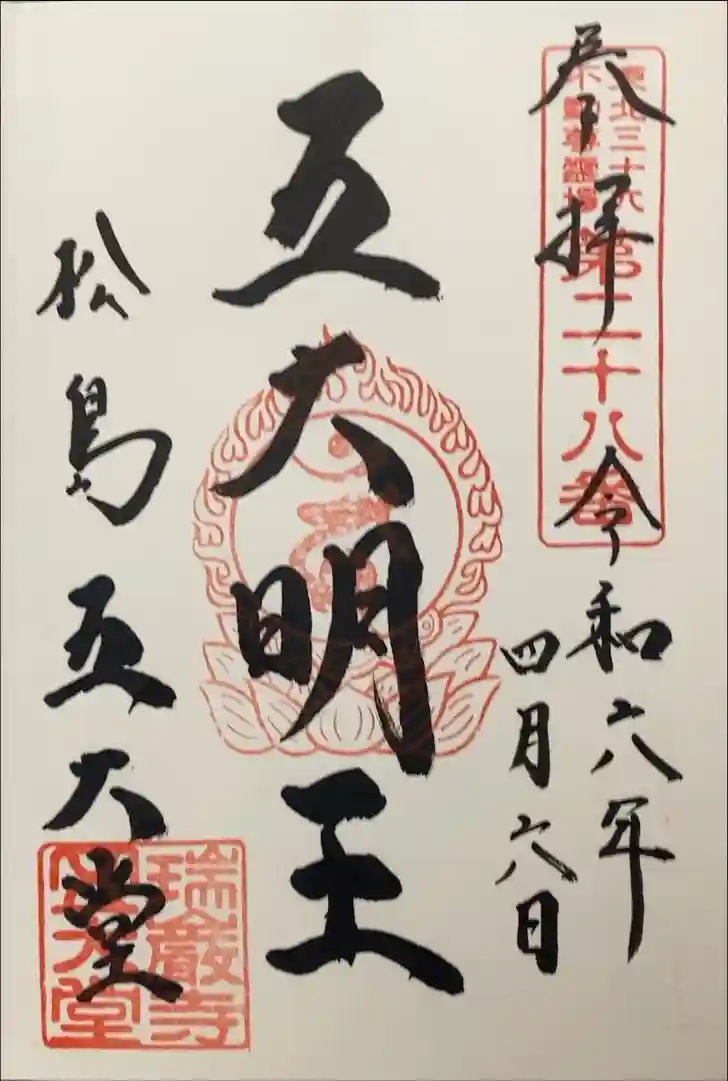 奉拝
東北三十六
不動尊霊場
第二十八番
令和六年
四月六日
五大明王
松島五大堂
瑞巌寺
五大堂